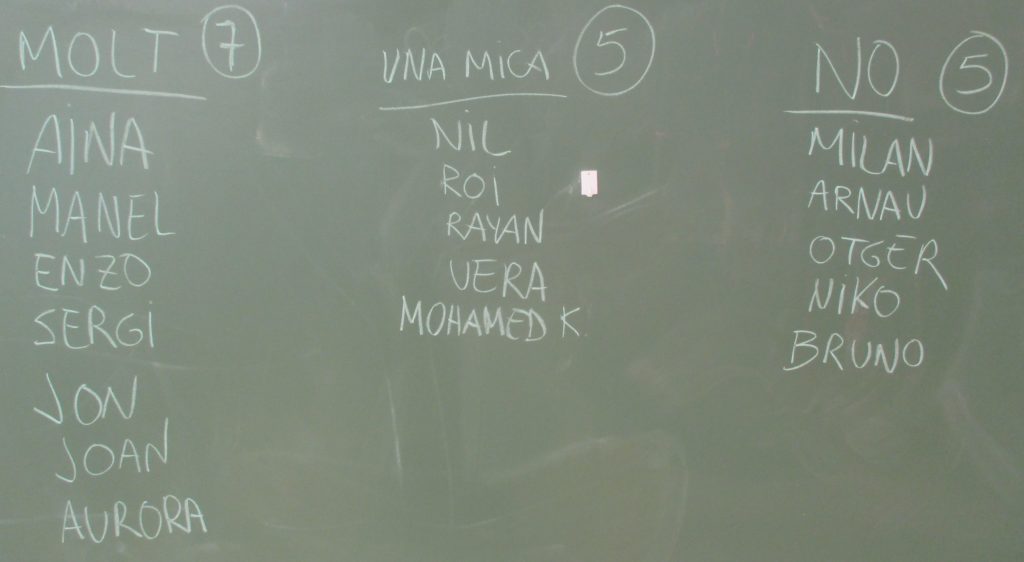 MOLT 7
AINA
MANEL
ENZO
SERGI
JON
JOAN
AURORA
UNA MICA 5
NIL
ROI
RAYAN
VERA
MOHAMED K.
NO 5
MILAN
ARNAU
OTGER
NIKO
BRUNO